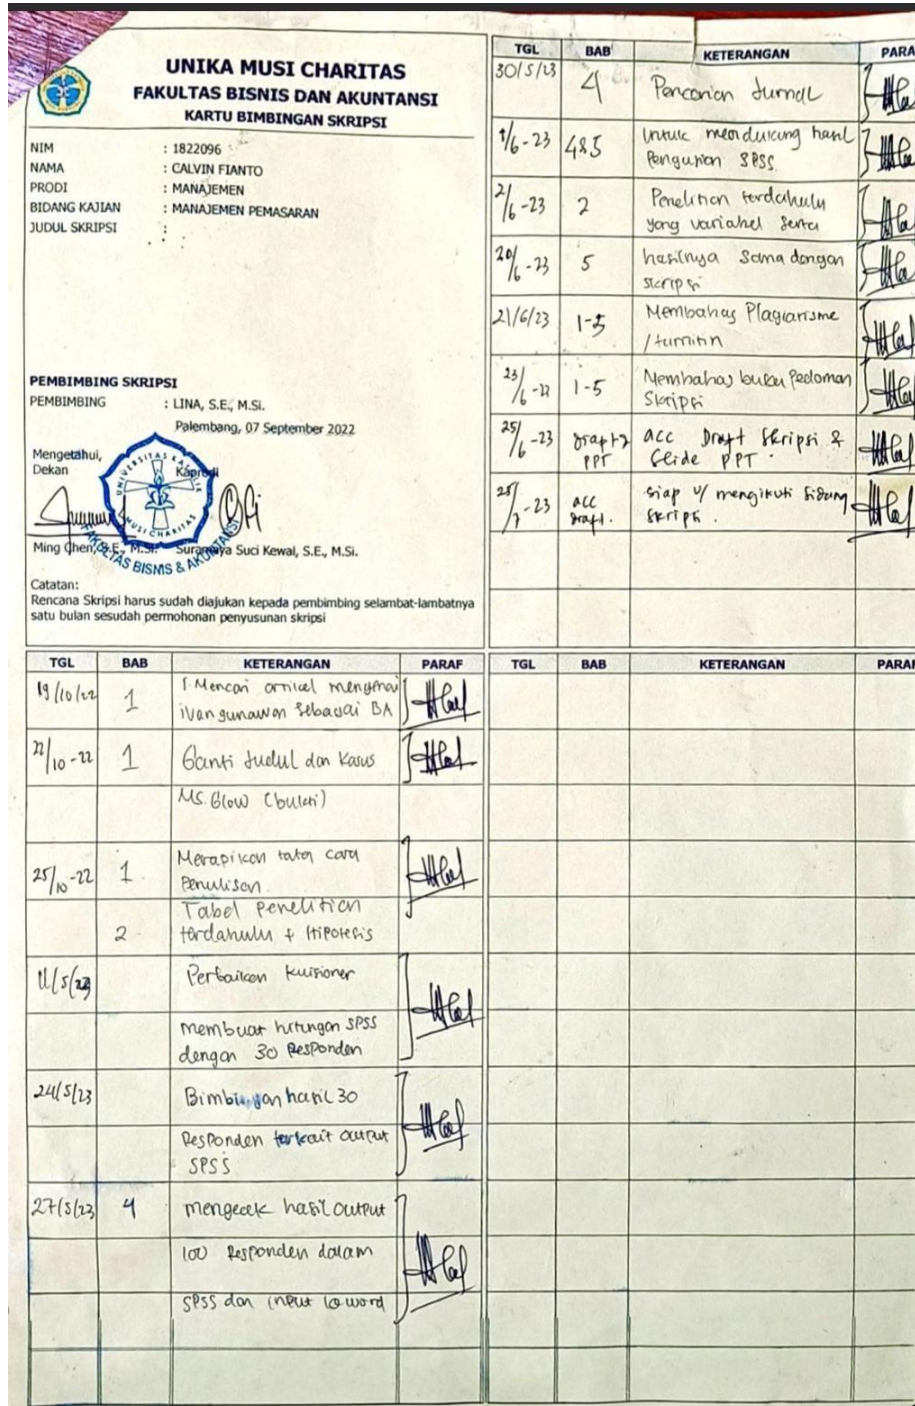 UNIKA MUSI CHARITAS
FAKULTAS BISNIS DAN AKUNTANSI
KARTU BIMBINGAN SKRIPSI
NIM : 1822096
NAMA : CALVIN FIANTO
PRODI : MANAJEMEN
BIDANG KAJIAN : MANAJEMEN PEMASARAN
JUDUL SKRIPSI :
PEMBIMBING SKRIPSI
PEMBIMBING : LINA, S.E., M.Si.
Palembang, 07 September 2022
Mengetahui,
Dekan Kaprodi
UNIVERSITAS KATOLIK
MUSI CHARITAS
FAKULTAS BISNIS & AKUNTANSI
Ming Chen, S.E., M.Si. Suramaya Suci Kewal, S.E., M.Si.
Catatan:
Rencana Skripsi harus sudah diajukan kepada pembimbing selambat-lambatnya
satu bulan sesudah permohonan penyusunan skripsi
TGL BAB KETERANGAN PARAF
19/10/22 1 1. Mencari artikel mengenai
ivan gunawan sebagai BA
22/10-22 1 Ganti Judul dan Kasus
MS. Glow (bukti)
25/10-22 1. Merapikan tata cara
Penulisan.
Tabel Penelitian
2 terdahulu + Hipotesis
11/5/23 Perbaikan Kuisioner
membuat hitungan SPSS
dengan 30 Responden
24/5/23 Bimbingan hasil 30
Responden terkait output
SPSS
27/5/23 4 mengecek hasil output
100 Responden dalam
SPSS dan input ke word
TGL BAB KETERANGAN PARA
30/5/23 4 Pencarian Jurnal
1/6-23 4&5 Untuk mendukung hasil
Pengujian SPSS
2/6-23 2 Penelitian terdahulu
yang variabel serta
20/6-23 5 hasilnya sama dengan
skripsi
21/6/23 1-5 Membahas Plagiarisme
/turnitin
23/6-23 1-5 Membahas buku Pedoman
Skripsi
25/6-23 PPT acc Draft Skripsi &
Slide PPT.
25/7-23 acc draft. siap u/ mengikuti Sidang
Skripsi.
TGL BAB KETERANGAN PARAF